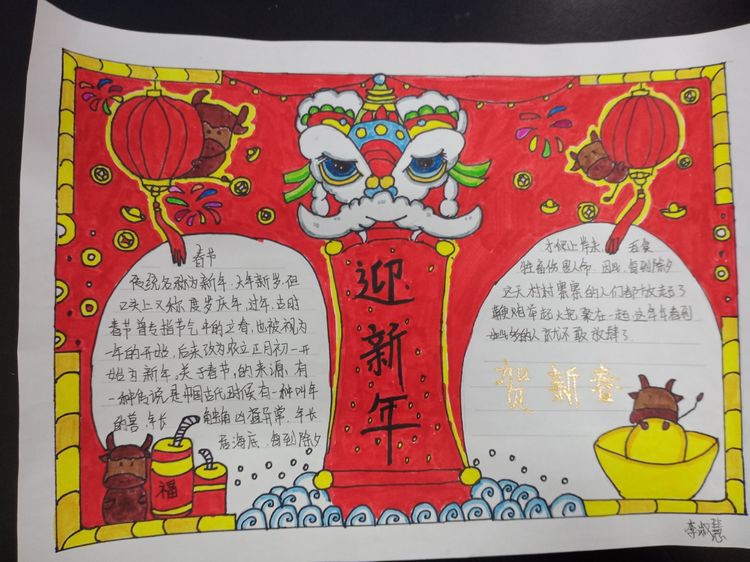 春节
传统名称为新年、大年新岁、但
口头上又称度岁庆年、过年、古时
春节曾专指节气中的立春、也被视为
一年的开始、后来改为农立正月初一开
始为新年。关于春节,的来源,有
一种传说,是中国古代时候有一种叫年
的兽、年长 触角凶猛异常、年长
居海底、每到除夕
才便上岸来、吞食
牲畜伤害人命、因此、每到除夕
这天村村寨寨的人们都
起火把聚在一起、这年年看到
的人 就不敢放肆了
贺新春
迎新年
福
李淑慧